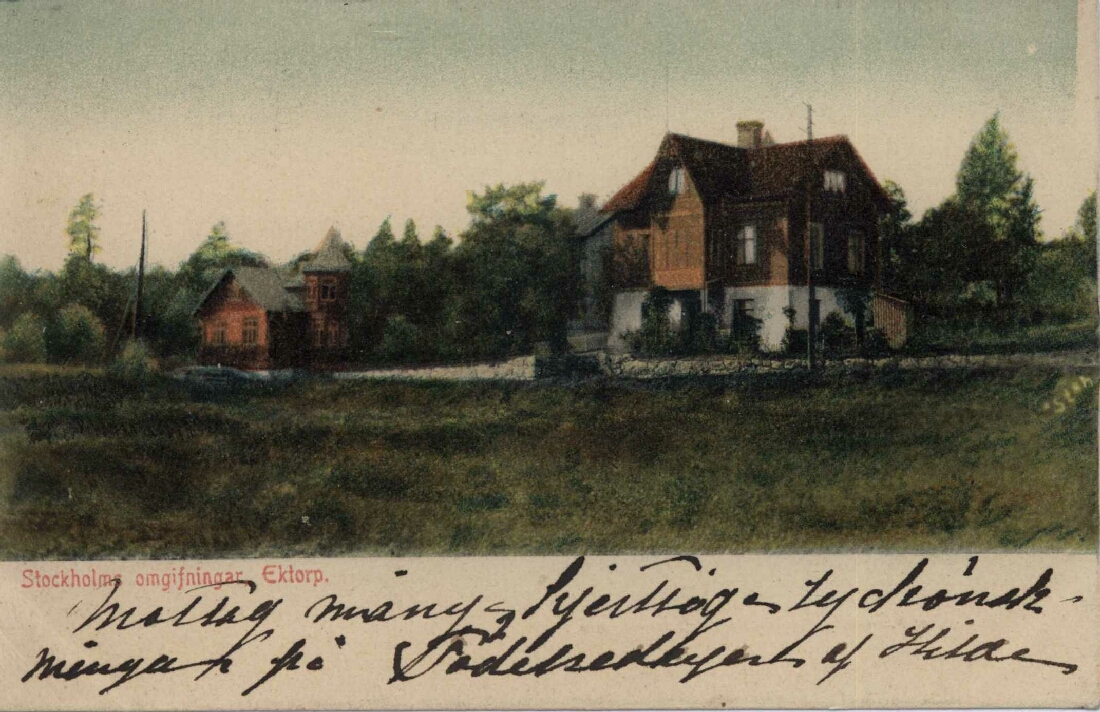 Stockholms omgifningar. Ektorp.
Mottag många hjertliga lyckönsk-
ningar på Födelsedagen af Hilda